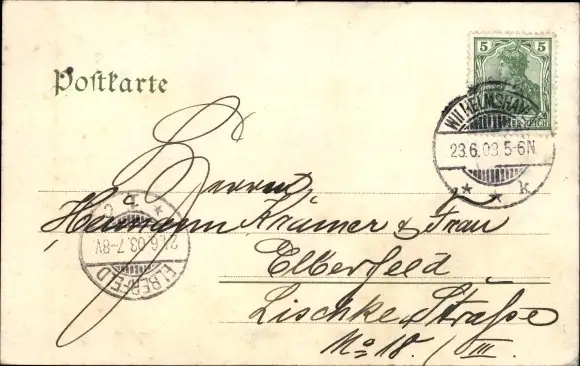 5 5
Poſtkarte
WILHELMSHAV
23.6.03.5-6N
* * k
Herrn
Hermann Krämer & Frau
Elberfeld
Lischke Straße
No 18. / III.
ELBERFELD
24.6.03.7-8V